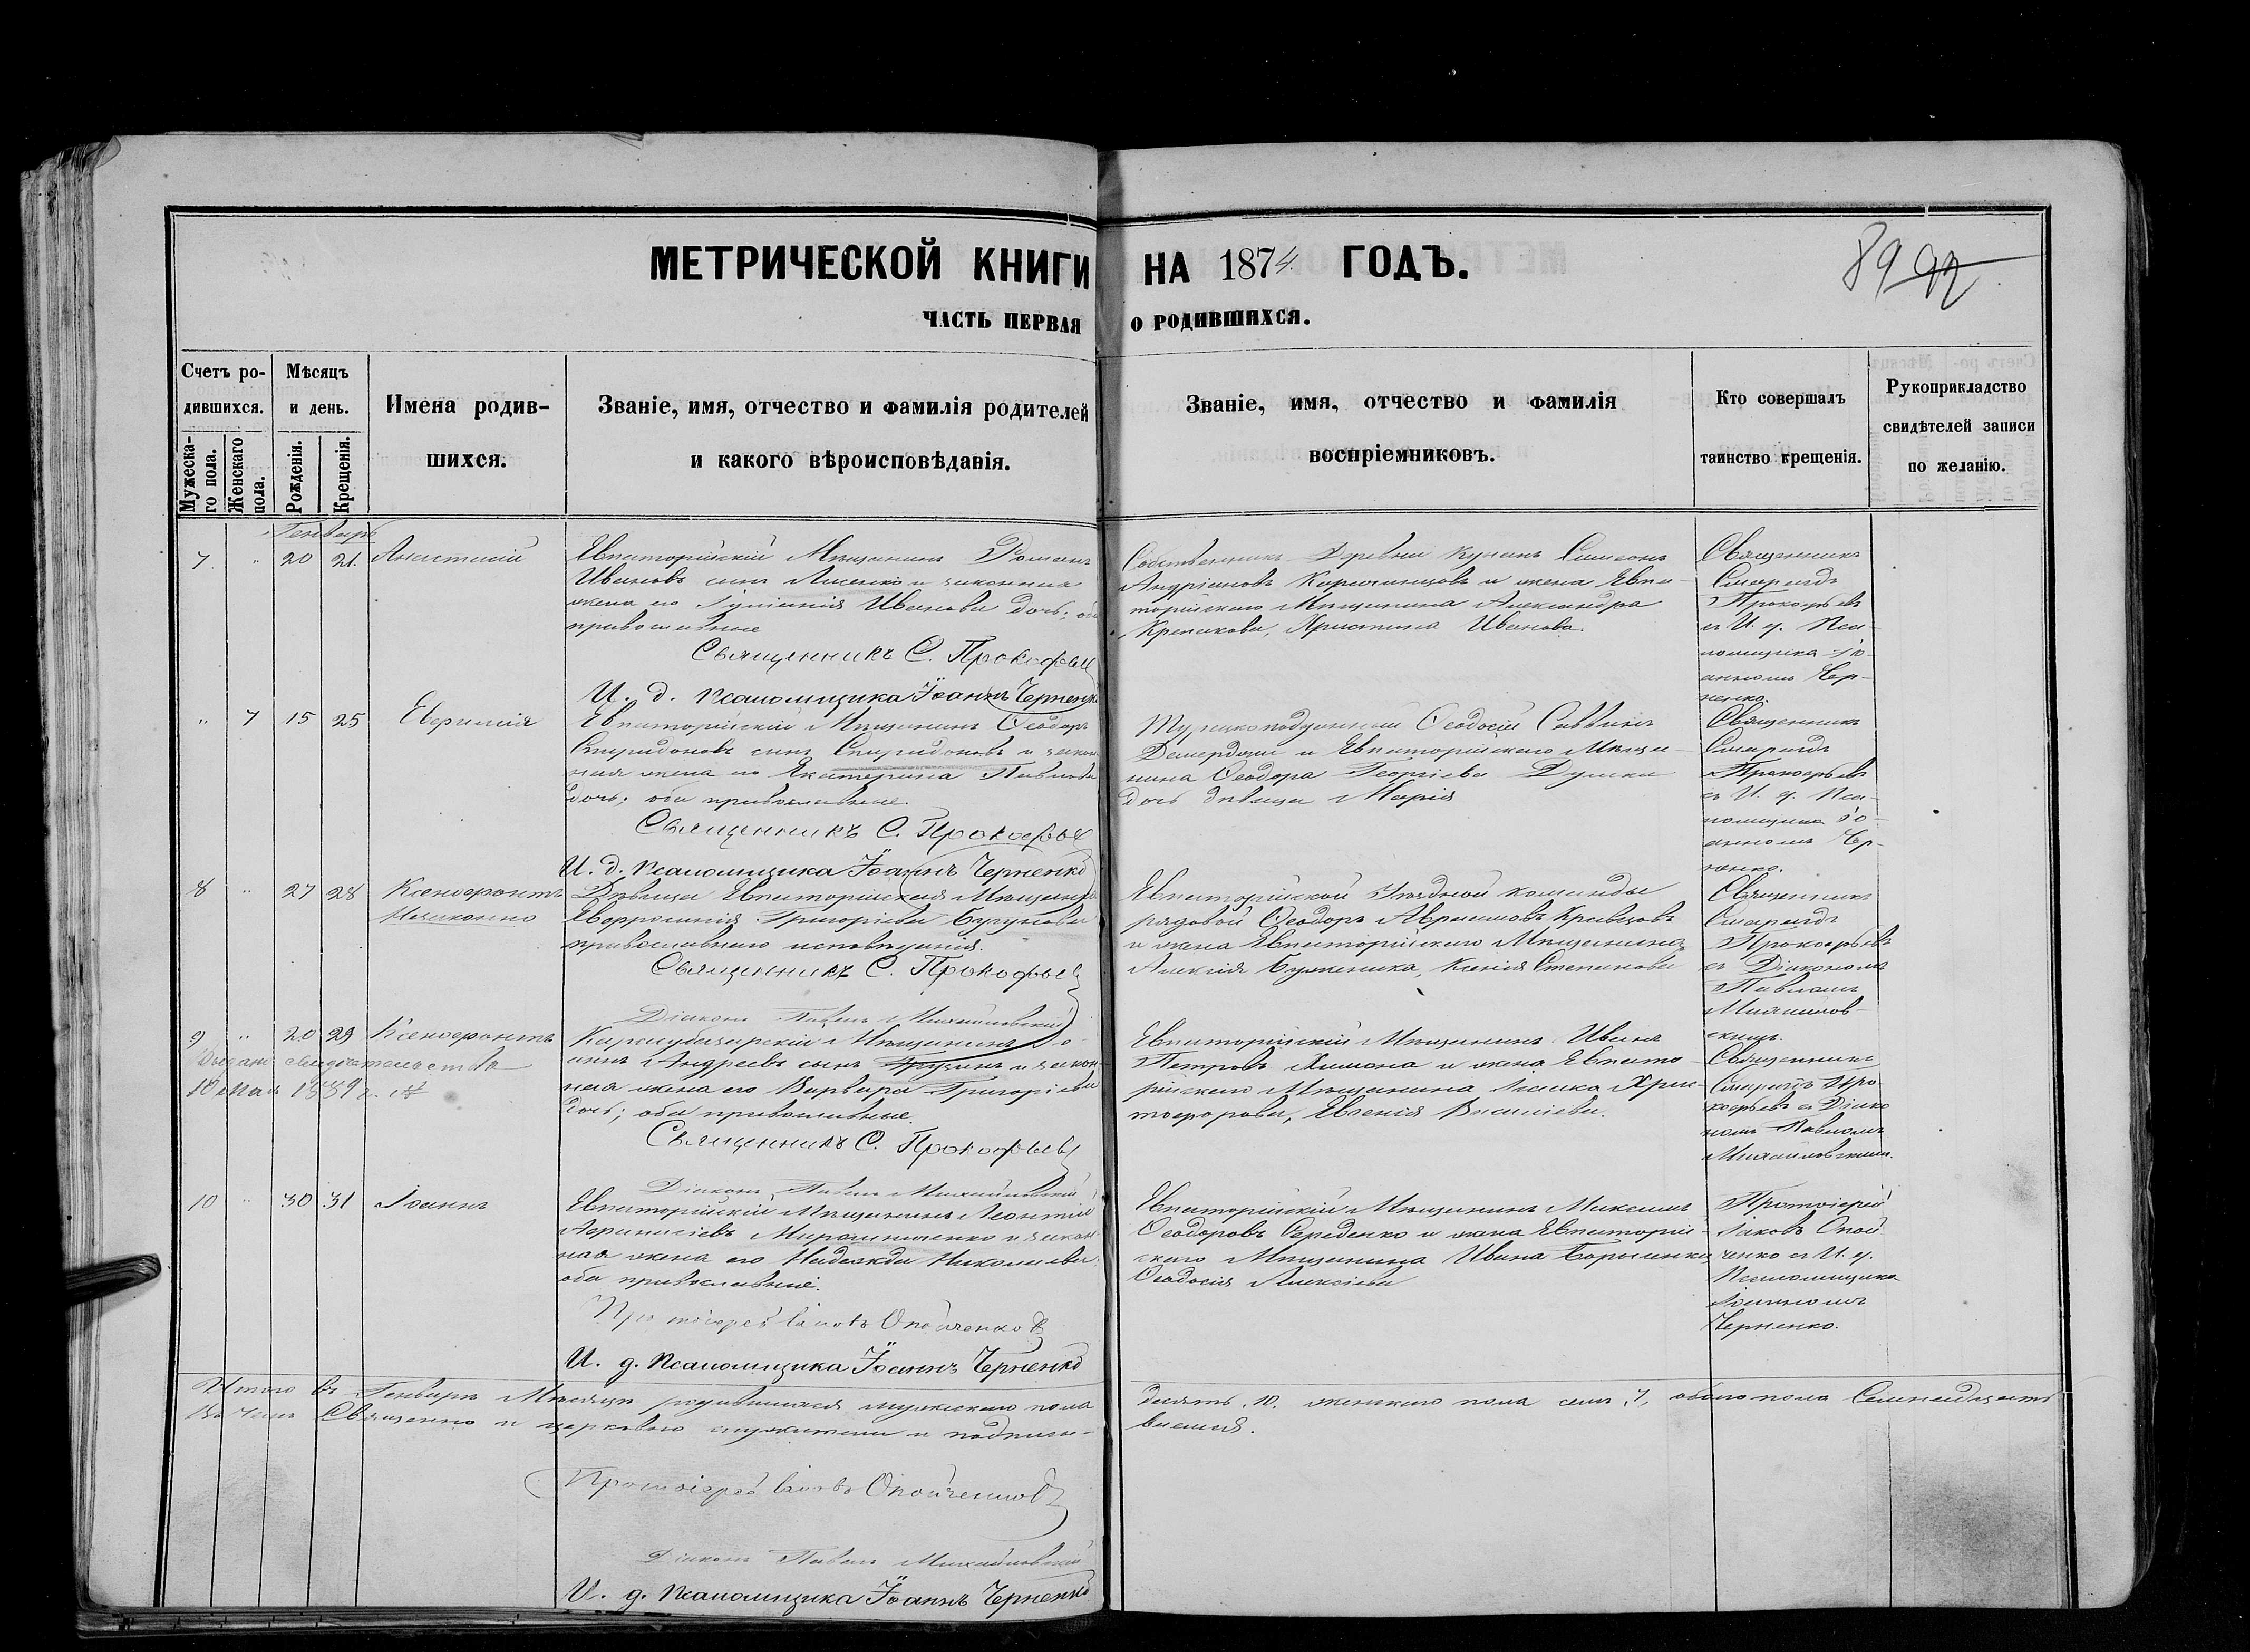 МЕТРИЧЕСКОЙ КНИГИ НА 1874 ГОДЪ.
89 92
ЧАСТЬ ПЕРВАЯ О РОДИВШИХСЯ.
Счетъ ро-
дившихся.
Мужеска-
го пола.
Женскаго
пола.
Мѣсяцъ
и день.
Рожденія.
Крещенія.
Имена родив-
шихся.
Званіе, имя, отчество и фамилія родителей
и какого вѣроисповѣданія.
Званіе, имя, отчество и фамилія
воспріемниковъ.
Кто совершалъ
таинство крещенія.
Рукоприкладство
свидѣтелей записи
по желанію.
Генварь
7 " 20 21 Анастасій
Евпаторійскій Мѣщанинъ
Ивановъ сынъ Лисенко и законная
жена его Іуліанія Иванова дочь; оба
православные
Священникъ С. Прокофьев
И. д. Псаломщика Іоаннъ Черненко
Симеонъ
Андріановъ и жена Евпа-
торійскаго Мѣщанина Александра
Христина Иванова.
Священникъ
Смарагдъ
Прокофьевъ
съ И. д. Пса-
ломщика Іо-
анномъ Чер-
ненко.
" 7 15 25 Евфимія
Евпаторійскій Мѣщанинъ Ѳеодоръ
Спиридоновъ сынъ Спиридоновъ и закон-
ная жена его Екатерина Павлова
дочь; оба православные.
Священникъ С. Прокофьев
И. д. Псаломщика Іоаннъ Черненко
Турецкоподданный Ѳеодосій Саввинъ
и Евпаторійскаго Мѣща-
нина Ѳеодора Георгіева
дочь дѣвица Марія
Священникъ
Смарагдъ
Прокофьевъ
съ И. д. Пса-
ломщика Іо-
анномъ Чер-
ненко.
8 " 27 28 Ксенофонтъ
Незаконно
Дѣвица Евпаторійская Мѣщанка
Евфросинія Григоріева
православнаго исповѣданія.
Священникъ С. Прокофьев
Діаконъ Павелъ Михайловскій
Евпаторійской Уѣздной команды
рядовой Ѳеодоръ Аврамовъ Кравцовъ
и жена Евпаторійскаго Мѣщанина
Алексія Бужемика, Ксенія Степанова
Священникъ
Смарагдъ
Прокофьевъ
съ Діакономъ
Павломъ
Михайлов-
скимъ.
9 " 20 29 Ксенофонтъ
Выдано свидѣтельство
Карасубазарскій Мѣщанинъ Іо-
аннъ Андреевъ сынъ и закон-
ная жена его Варвара Григоріева
дочь; оба православные.
Священникъ С. Прокофьевъ
Діаконъ Павелъ Михайловскій
Евпаторійскій Мѣщанинъ Иванъ
Петровъ и жена Евпато-
рійскаго Мѣщанина Хрис-
тофорова, Евгенія Васильева.
Священникъ
Смарагдъ Про-
кофьевъ съ Діако-
номъ Павломъ
Михайловскимъ.
10 " 30 31 Іоаннъ
Евпаторійскій Мѣщанинъ Леонтій
Аѳанасіевъ Мирошниченко и закон-
ная жена его Надежда Николаева
оба православные.
Протоіерей Іаковъ Опойченко
И. д. Псаломщика Іоаннъ Черненко
Евпаторійскій Мѣщанинъ Максимъ
Ѳеодоровъ Середенко и жена Евпаторій-
скаго Мѣщанина Ивана Борисенко
Ѳеодосія Алексіева
Протоіерей
Іаковъ Опой-
ченко съ И. д.
Псаломщика
Іоанномъ
Черненко.
Итого въ Генварѣ Мѣсяцѣ родившихся мужескаго пола десять, 10, женскаго пола семь, 7, обоего пола Семнадцать
Въ чемъ Священно и церковно служители и подписы-
ваемся.
Протоіерей Іаковъ Опойченко
Діаконъ Павелъ Михайловскій
И. д. Псаломщика Іоаннъ Черненко